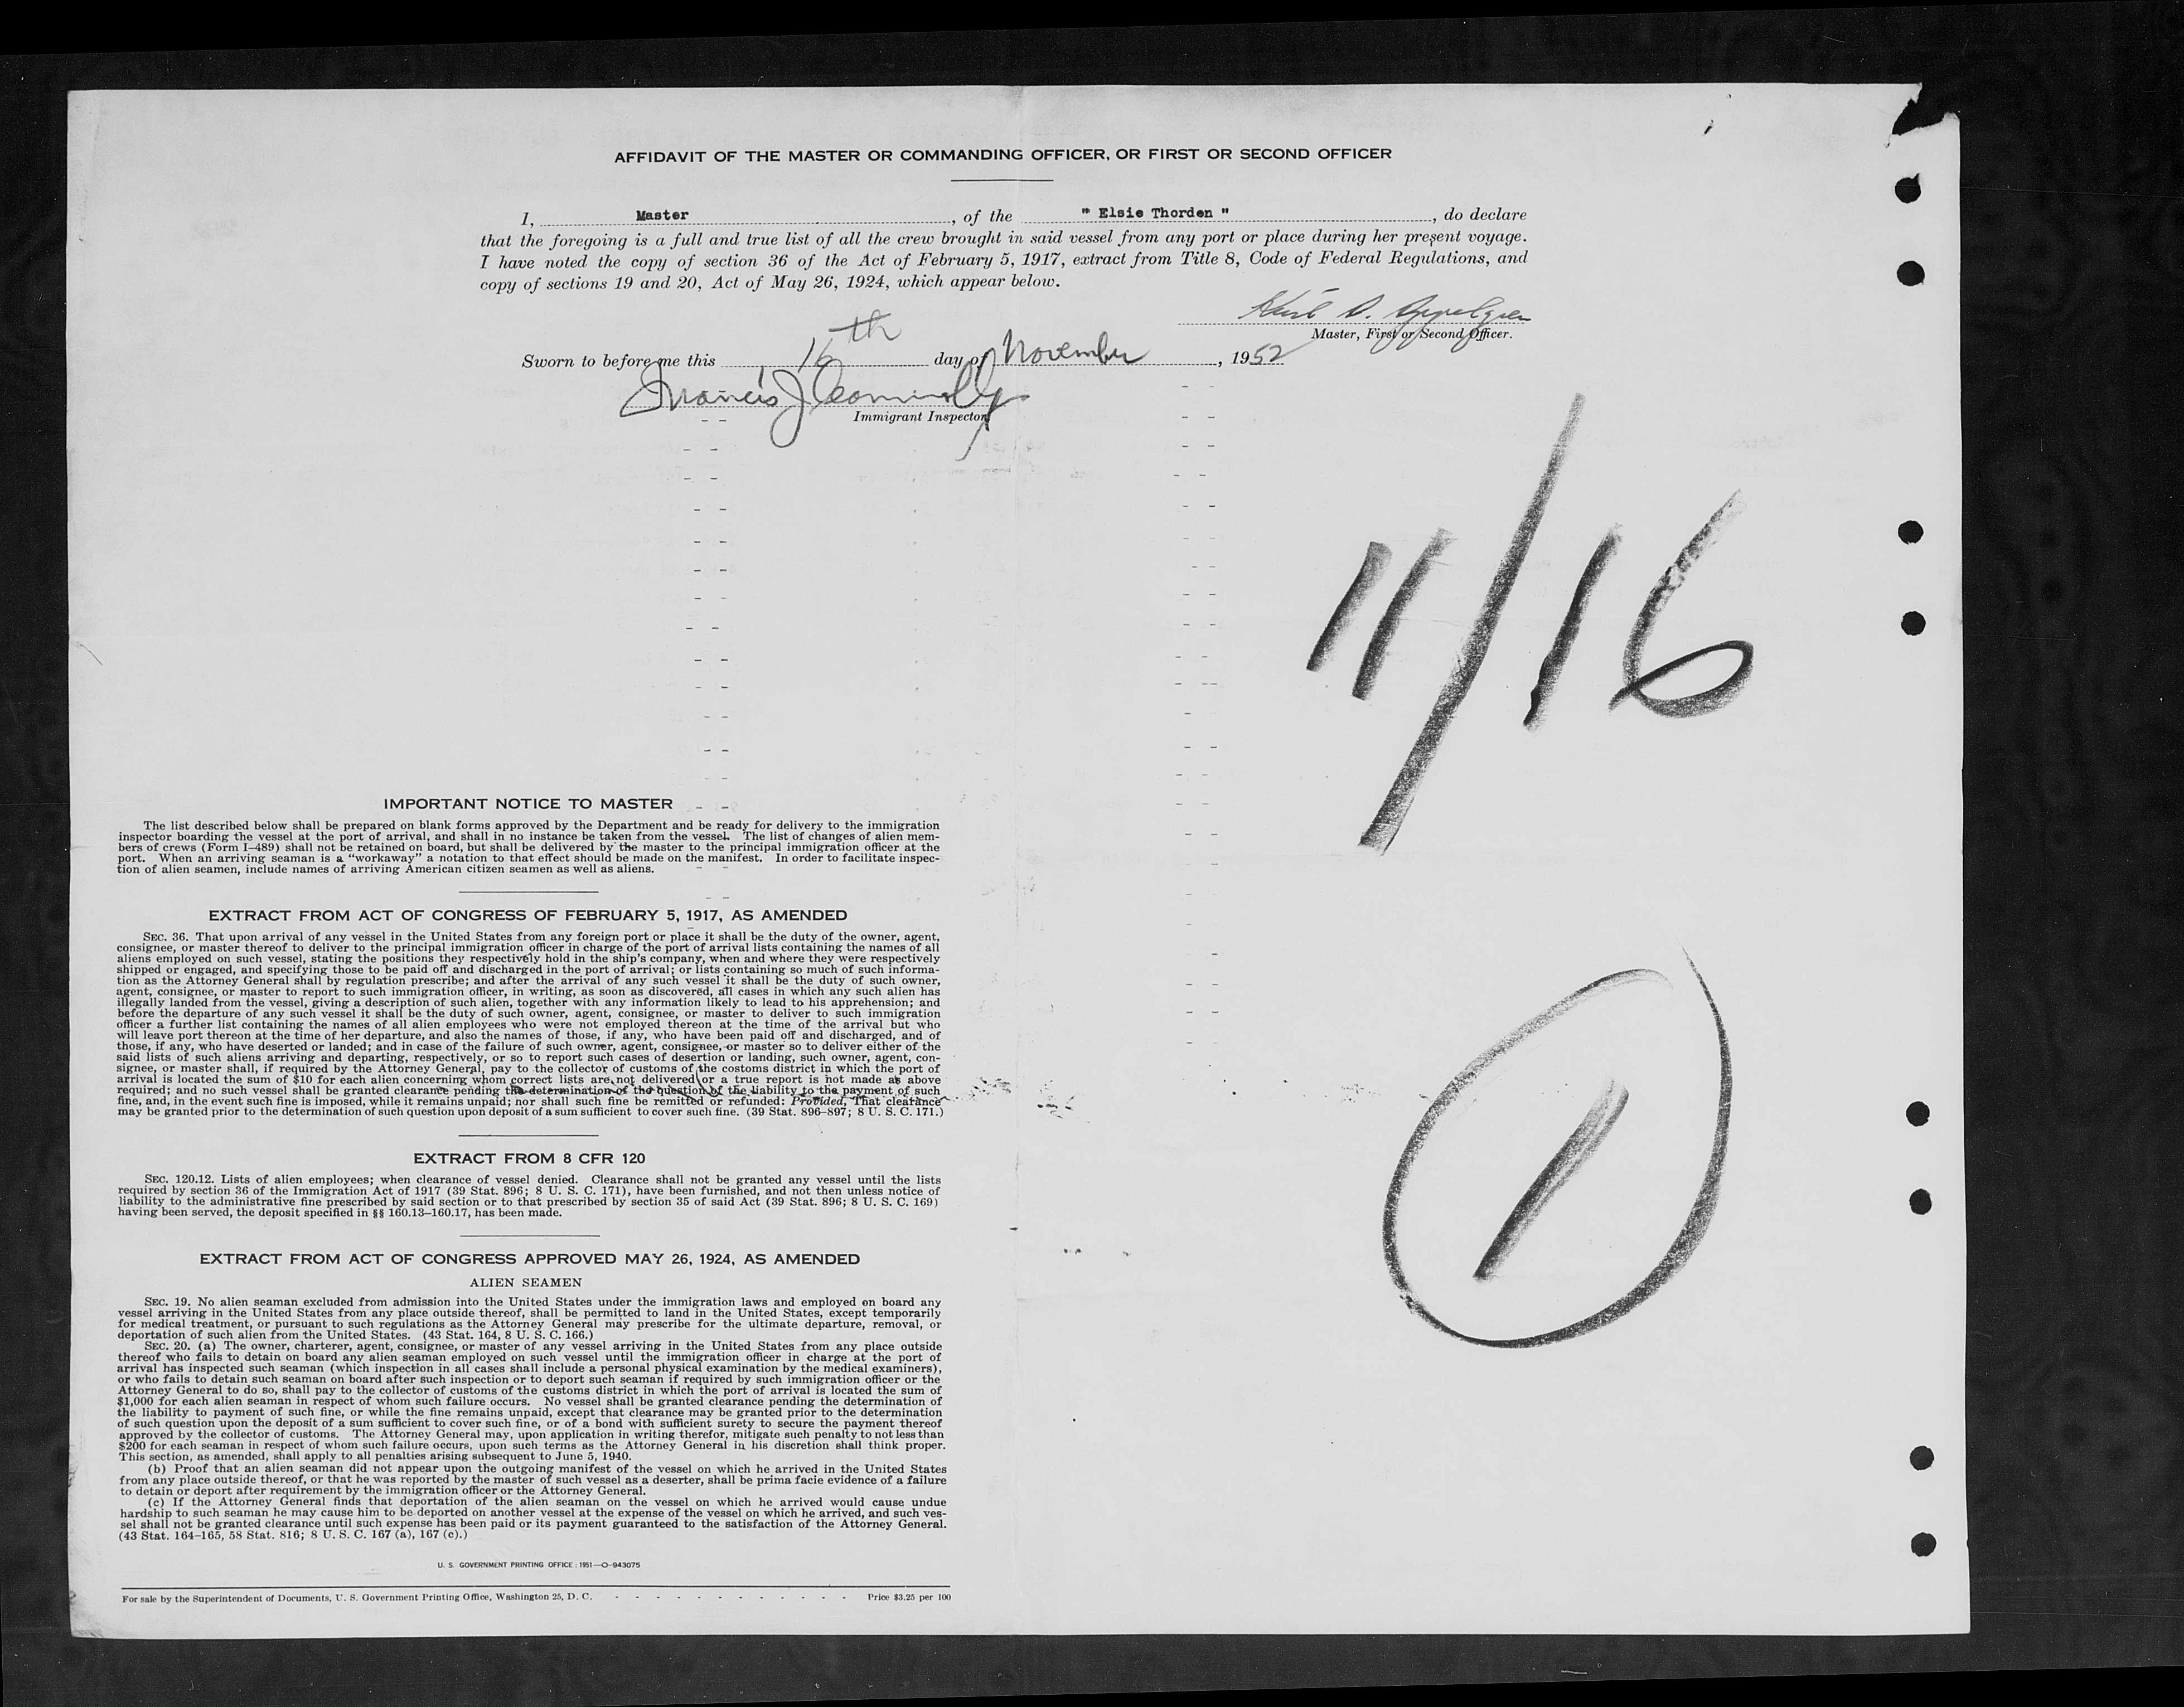 AFFIDAVIT OF THE MASTER OR COMMANDING OFFICER, OR FIRST OR SECOND OFFICER
I, Master, of the " Elsie Thorden ", do declare
that the foregoing is a full and true list of all the crew brought in said vessel from any port or place during her present voyage.
I have noted the copy of section 36 of the Act of February 5, 1917, extract from Title 8, Code of Federal Regulations, and
copy of sections 19 and 20, Act of May 26, 1924, which appear below.
Master, First or Second Officer.
Sworn to before me this 16th day of November, 1952
Francis J Connolly
Immigrant Inspector
11/16
IMPORTANT NOTICE TO MASTER
The list described below shall be prepared on blank forms approved by the Department and be ready for delivery to the immigration
inspector boarding the vessel at the port of arrival, and shall in no instance be taken from the vessel. The list of changes of alien mem-
bers of crews (Form I-489) shall not be retained on board, but shall be delivered by the master to the principal immigration officer at the
port. When an arriving seaman is a "workaway" a notation to that effect should be made on the manifest. In order to facilitate inspec-
tion of alien seamen, include names of arriving American citizen seamen as well as aliens.
EXTRACT FROM ACT OF CONGRESS OF FEBRUARY 5, 1917, AS AMENDED
SEC. 36. That upon arrival of any vessel in the United States from any foreign port or place it shall be the duty of the owner, agent,
consignee, or master thereof to deliver to the principal immigration officer in charge of the port of arrival lists containing the names of all
aliens employed on such vessel, stating the positions they respectively hold in the ship's company, when and where they were respectively
shipped or engaged, and specifying those to be paid off and discharged in the port of arrival; or lists containing so much of such informa-
tion as the Attorney General shall by regulation prescribe; and after the arrival of any such vessel it shall be the duty of such owner,
agent, consignee, or master to report to such immigration officer, in writing, as soon as discovered, all cases in which any such alien has
illegally landed from the vessel, giving a description of such alien, together with any information likely to lead to his apprehension; and
before the departure of any such vessel it shall be the duty of such owner, agent, consignee, or master to deliver to such immigration
officer a further list containing the names of all alien employees who were not employed thereon at the time of the arrival but who
will leave port thereon at the time of her departure, and also the names of those, if any, who have been paid off and discharged, and of
those, if any, who have deserted or landed; and in case of the failure of such owner, agent, consignee, or master so to deliver either of the
said lists of such aliens arriving and departing, respectively, or so to report such cases of desertion or landing, such owner, agent, con-
signee, or master shall, if required by the Attorney General, pay to the collector of customs of the costoms district in which the port of
arrival is located the sum of $10 for each alien concerning whom correct lists are not delivered or a true report is not made as above
required; and no such vessel shall be granted clearance pending the determination of the question of the liability to the payment of such
fine, and, in the event such fine is imposed, while it remains unpaid; nor shall such fine be remitted or refunded: Provided, That clearance
may be granted prior to the determination of such question upon deposit of a sum sufficient to cover such fine. (39 Stat. 896-897; 8 U. S. C. 171.)
EXTRACT FROM 8 CFR 120
SEC. 120.12. Lists of alien employees; when clearance of vessel denied. Clearance shall not be granted any vessel until the lists
required by section 36 of the Immigration Act of 1917 (39 Stat. 896; 8 U. S. C. 171), have been furnished, and not then unless notice of
liability to the administrative fine prescribed by said section or to that prescribed by section 35 of said Act (39 Stat. 896; 8 U. S. C. 169)
having been served, the deposit specified in §§ 160.13–160.17, has been made.
EXTRACT FROM ACT OF CONGRESS APPROVED MAY 26, 1924, AS AMENDED
ALIEN SEAMEN
SEC. 19. No alien seaman excluded from admission into the United States under the immigration laws and employed on board any
vessel arriving in the United States from any place outside thereof, shall be permitted to land in the United States, except temporarily
for medical treatment, or pursuant to such regulations as the Attorney General may prescribe for the ultimate departure, removal, or
deportation of such alien from the United States. (43 Stat. 164, 8 U. S. C. 166.)
SEC. 20. (a) The owner, charterer, agent, consignee, or master of any vessel arriving in the United States from any place outside
thereof who fails to detain on board any alien seaman employed on such vessel until the immigration officer in charge at the port of
arrival has inspected such seaman (which inspection in all cases shall include a personal physical examination by the medical examiners),
or who fails to detain such seaman on board after such inspection or to deport such seaman if required by such immigration officer or the
Attorney General to do so, shall pay to the collector of customs of the customs district in which the port of arrival is located the sum of
$1,000 for each alien seaman in respect of whom such failure occurs. No vessel shall be granted clearance pending the determination of
the liability to payment of such fine, or while the fine remains unpaid, except that clearance may be granted prior to the determination
of such question upon the deposit of a sum sufficient to cover such fine, or of a bond with sufficient surety to secure the payment thereof
approved by the collector of customs. The Attorney General may, upon application in writing therefor, mitigate such penalty to not less than
$200 for each seaman in respect of whom such failure occurs, upon such terms as the Attorney General in his discretion shall think proper.
This section, as amended, shall apply to all penalties arising subsequent to June 5, 1940.
(b) Proof that an alien seaman did not appear upon the outgoing manifest of the vessel on which he arrived in the United States
from any place outside thereof, or that he was reported by the master of such vessel as a deserter, shall be prima facie evidence of a failure
to detain or deport after requirement by the immigration officer or the Attorney General.
(c) If the Attorney General finds that deportation of the alien seaman on the vessel on which he arrived would cause undue
hardship to such seaman he may cause him to be deported on another vessel at the expense of the vessel on which he arrived, and such ves-
sel shall not be granted clearance until such expense has been paid or its payment guaranteed to the satisfaction of the Attorney General.
(43 Stat. 164-165, 58 Stat. 816; 8 U. S. C. 167 (a), 167 (c).)
1
U. S. GOVERNMENT PRINTING OFFICE : 1951—O-943075
For sale by the Superintendent of Documents, U. S. Government Printing Office, Washington 25, D. C. - - - - - - - - - - - - Price $3.25 per 100